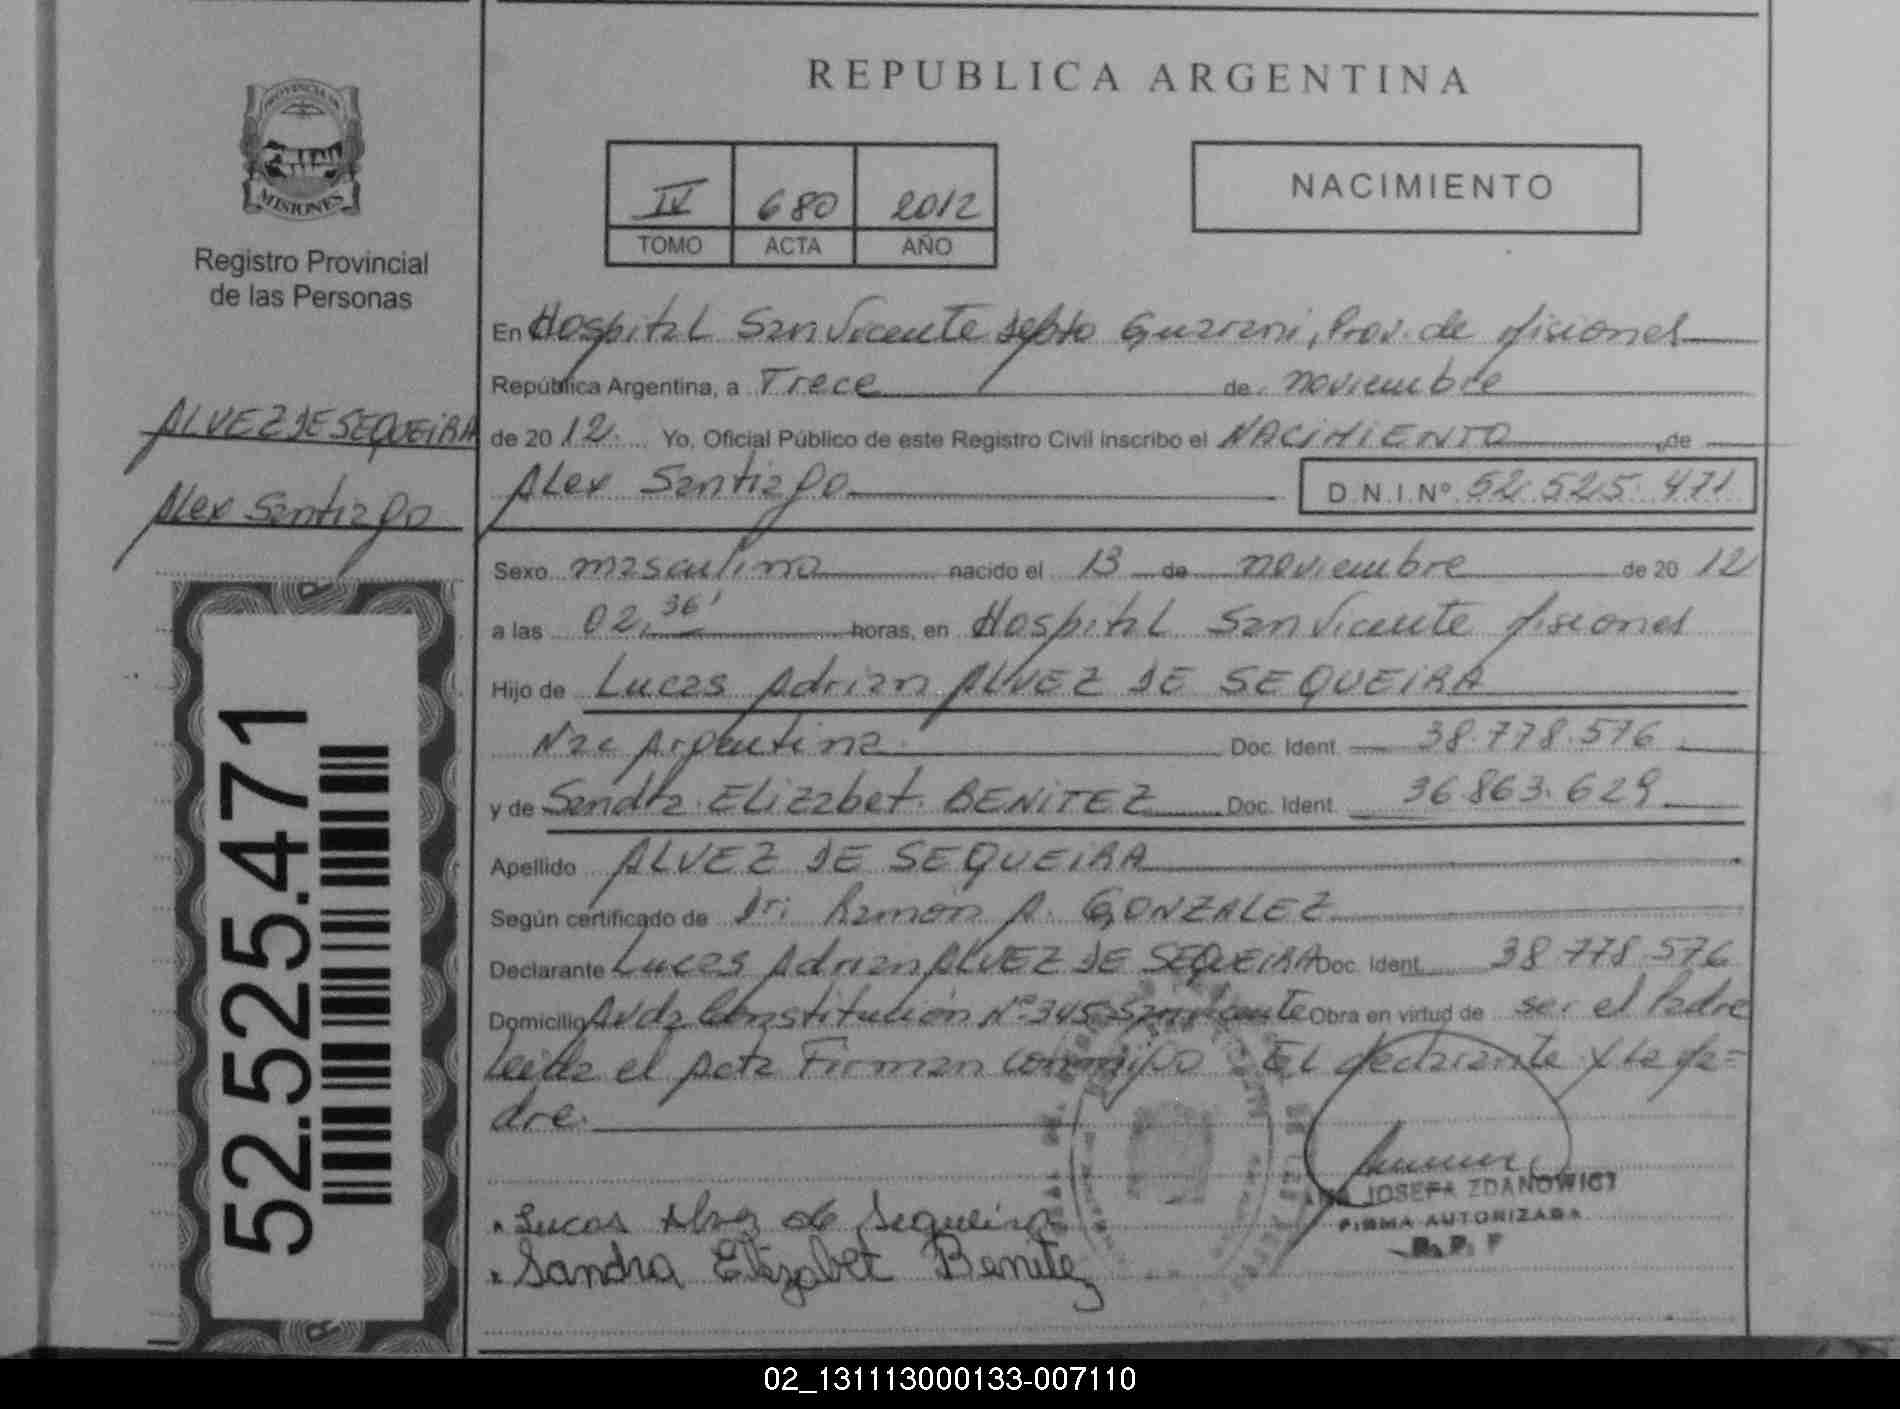 REPUBLICA ARGENTINA
PROVINCIA DE
MISIONES
Registro Provincial
de las Personas
ALVEZ DE SEQUEIRA
Alex Santiago
52.525.471
IV 680 2012
TOMO ACTA AÑO
NACIMIENTO
En Hospital San Vicente Depto Guarani, Prov. de Misiones
República Argentina, a Trece de noviembre
de 2012. Yo, Oficial Público de este Registro Civil inscribo el NACIMIENTO de
Alex Santiago D.N.I.Nº 52.525.471
Sexo masculino nacido el 13 de noviembre de 2012
a las 02,36' horas, en Hospital San Vicente Misiones
Hijo de Lucas Adrian ALVEZ DE SEQUEIRA
Nac Argentina. Doc. Ident. 38.778.576
y de Sandra Elizabet BENITEZ Doc. Ident. 36.863.629
Apellido ALVEZ DE SEQUEIRA
Según certificado de Dr: Ramon A. GONZALEZ
Declarante Lucas Adrian ALVEZ DE SEQUEIRA Doc. Ident. 38.778.576
Domicilio Avda Constitución Nº 345 San Vicente Obra en virtud de ser el Padre
Leida el Acta Firman conmigo El declarante y la Ma=
dre.
Lucas Alvez de Sequeira
Sandra Elizabet Benitez
JOSEFA ZDANOWICZ
FIRMA AUTORIZADA
R. P. P
02_131113000133-007110